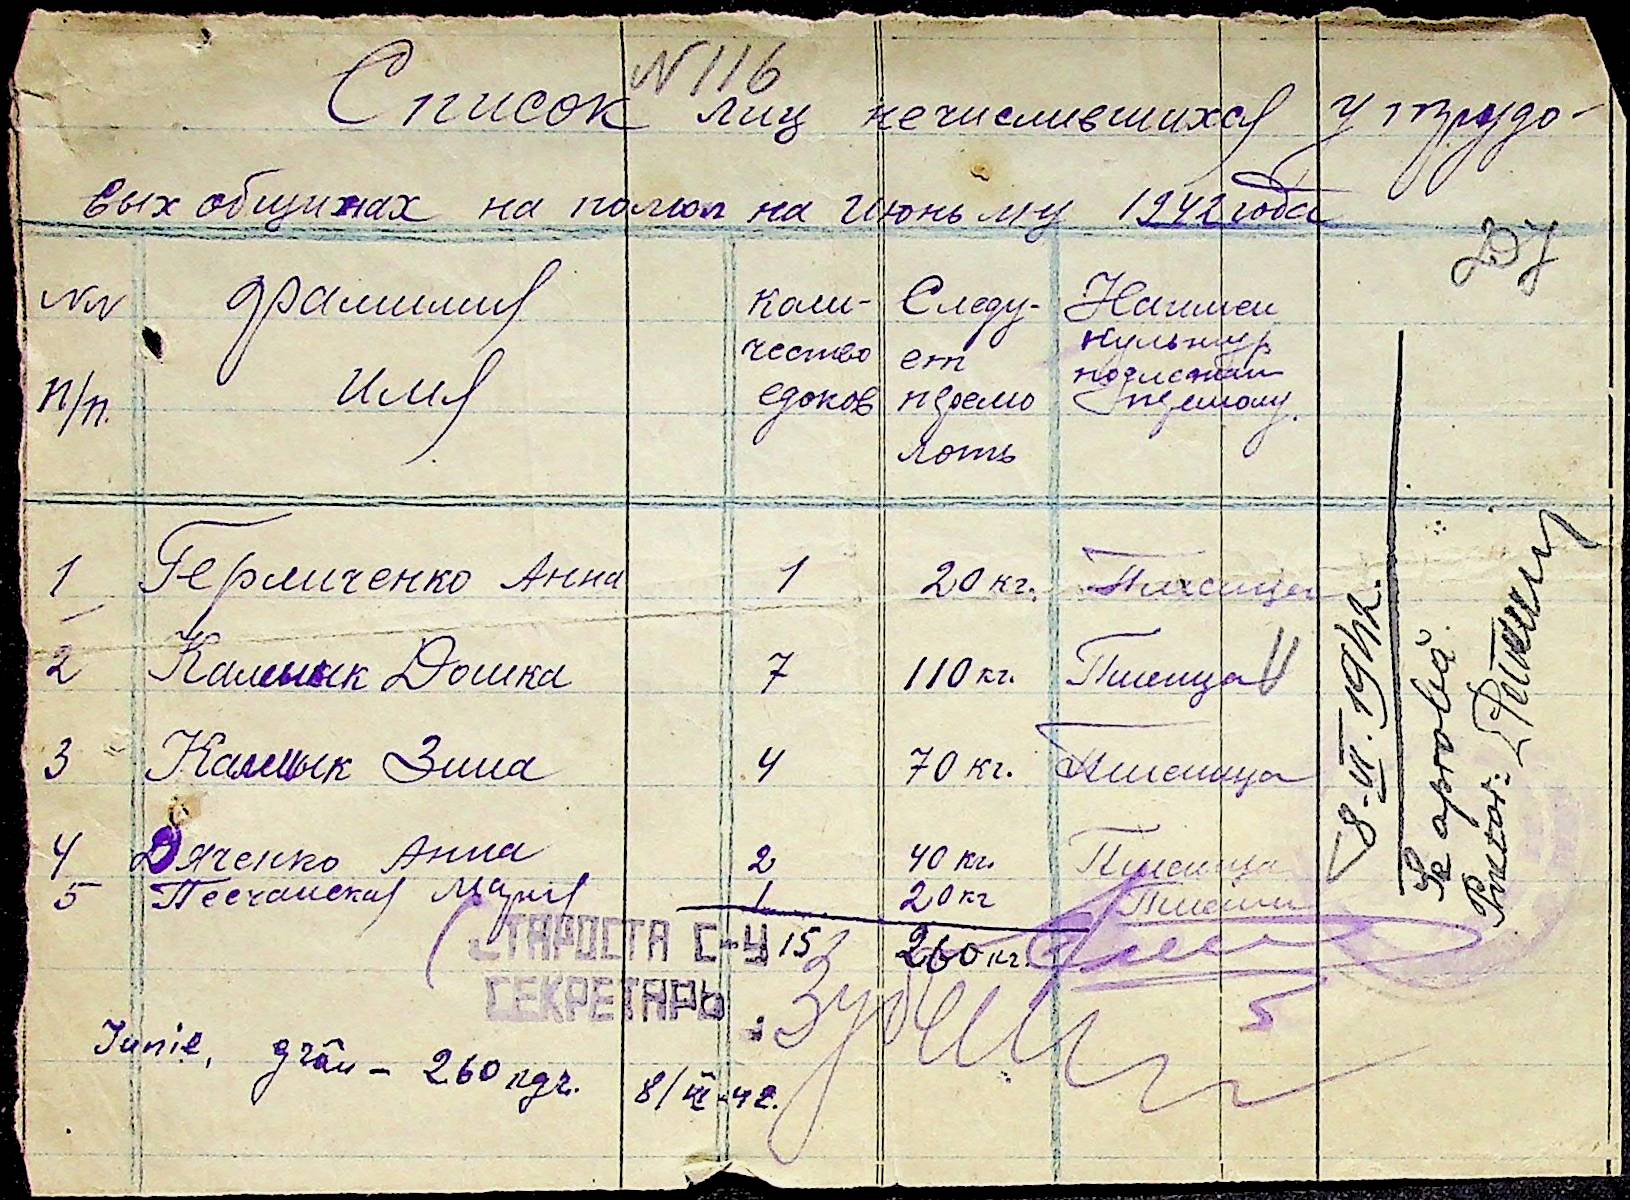 N 116
Список лиц нечислившихся у трудо-
вых общинах на помол на Июнь м-ц 1942 года
NN п/п. Фамилия Имя Коли-чество едоков Следу-ет перемо лоть Наимен культур подлежащ перемолу.
1 Германченко Анна 1 20 кг. Пшеница
2 Калмык Дошка 7 110 кг. Пшеница V
3 Калмык Зина 4 70 кг. Пшеница
4 Дяченко Анна 2 40 кг. Пшеница
5 Песчанская Мария 1 20 кг Пшени
15 260 кг.
СТАРОСТА С-У
СЕКРЕТАРЬ:
Iunie, grâu - 260 кgr. 8/VI-42.
8-VI.1942.
Se aprobă
Pretor: